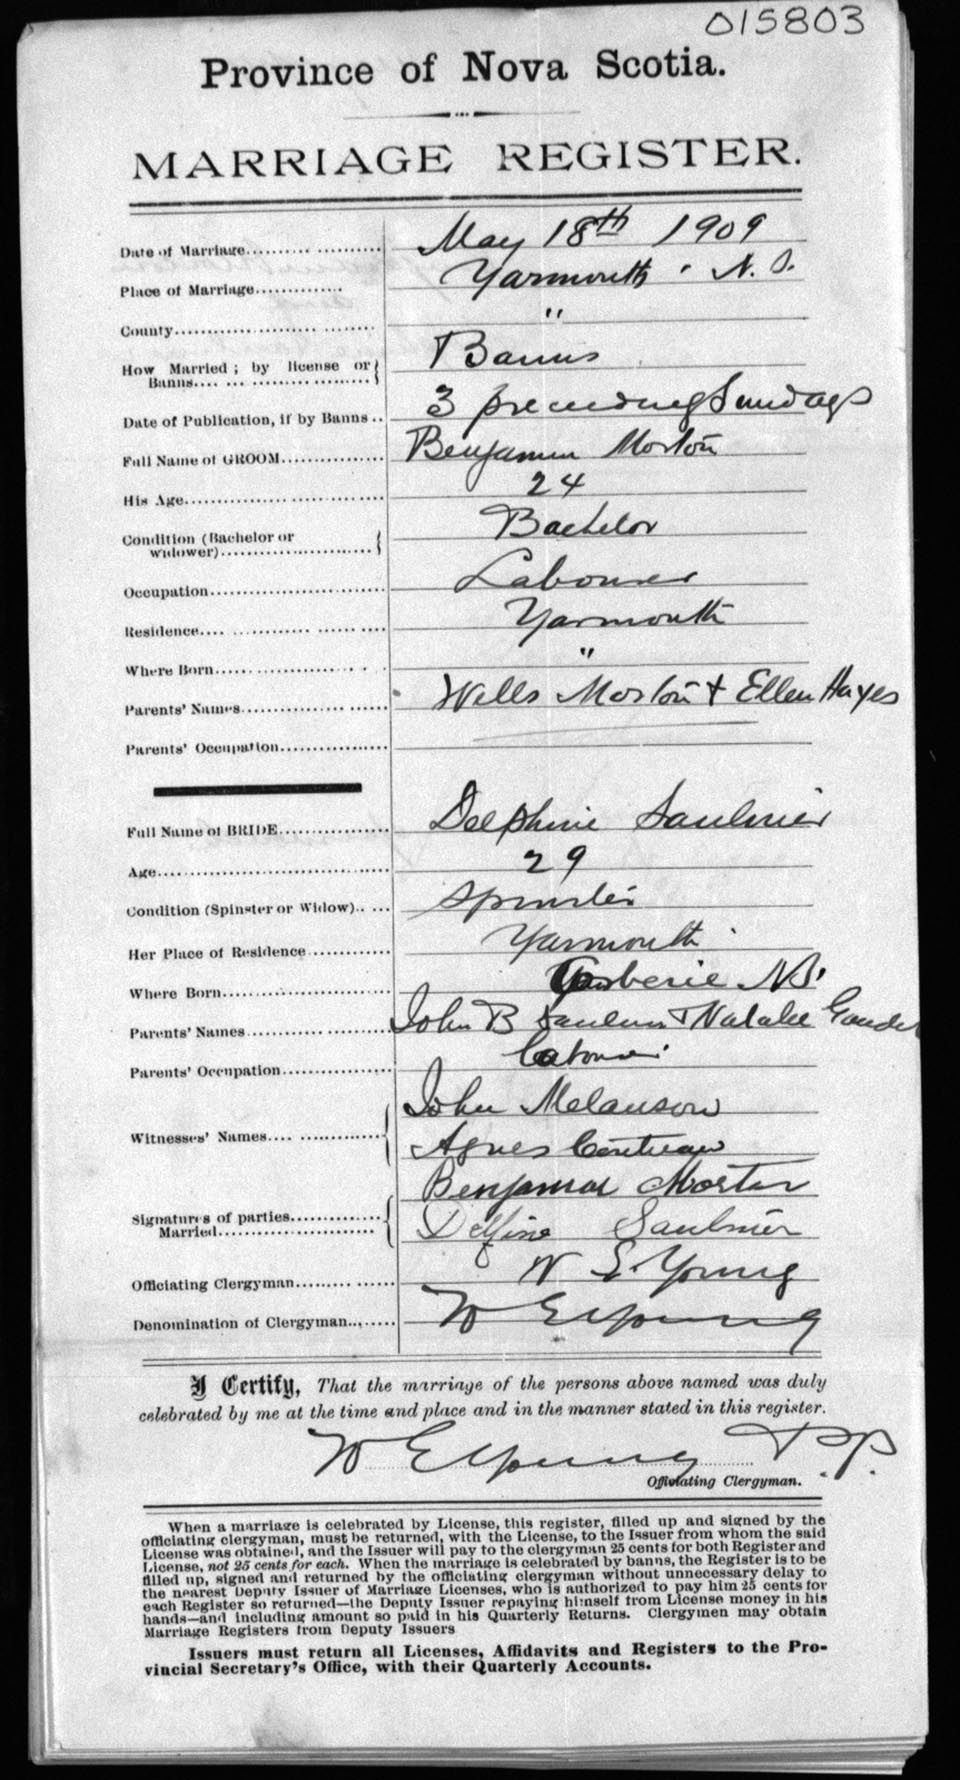 015803
Province of Nova Scotia.
MARRIAGE REGISTER.
Date of Marriage.......... May 18th 1909
Place of Marriage............. Yarmouth, N.S.
County.......... "
How Married; by license or Banns.......... Banns
Date of Publication, if by Banns.. 3 preceeding Sundays
Full Name of GROOM............... Benjamin Morton
His Age.......... 24
Condition (Bachelor or widower).......... Bachelor
Occupation.......... Labourer
Residence.......... Yarmouth
Where Born.......... "
Parents' Names.......... Wells Morton + Ellen Hayes
Parents' Occupation................
Full Name of BRIDE................ Delphine Saulnier
Age.......... 29
Condition (Spinster or Widow)..... Spinster
Her Place of Residence............ Yarmouth
Where Born.......... N.B.
Parents' Names.......... John B Saulnier + Natalie
Parents' Occupation................ Labourer
Witnesses' Names.......... John Melanson
Agnes Comeau
Signatures of parties Married.......... Benjamin Morton
Delfine Saulnier
Officiating Clergyman.......... W E Young
Denomination of Clergyman.......... W E Young
I Certify, That the marriage of the persons above named was duly
celebrated by me at the time and place and in the manner stated in this register.
W E Young P.P.
Officiating Clergyman.
When a marriage is celebrated by License, this register, filled up and signed by the
officiating clergyman, must be returned, with the License, to the Issuer from whom the said
License was obtained, and the Issuer will pay to the clergyman 25 cents for both Register and
License, not 25 cents for each. When the marriage is celebrated by banns, the Register is to be
filled up, signed and returned by the officiating clergyman without unnecessary delay to
the nearest Deputy Issuer of Marriage Licenses, who is authorized to pay him 25 cents for
each Register so returned—the Deputy Issuer repaying himself from License money in his
hands—and including amount so paid in his Quarterly Returns. Clergymen may obtain
Marriage Registers from Deputy Issuers
Issuers must return all Licenses, Affidavits and Registers to the Pro-
vincial Secretary's Office, with their Quarterly Accounts.